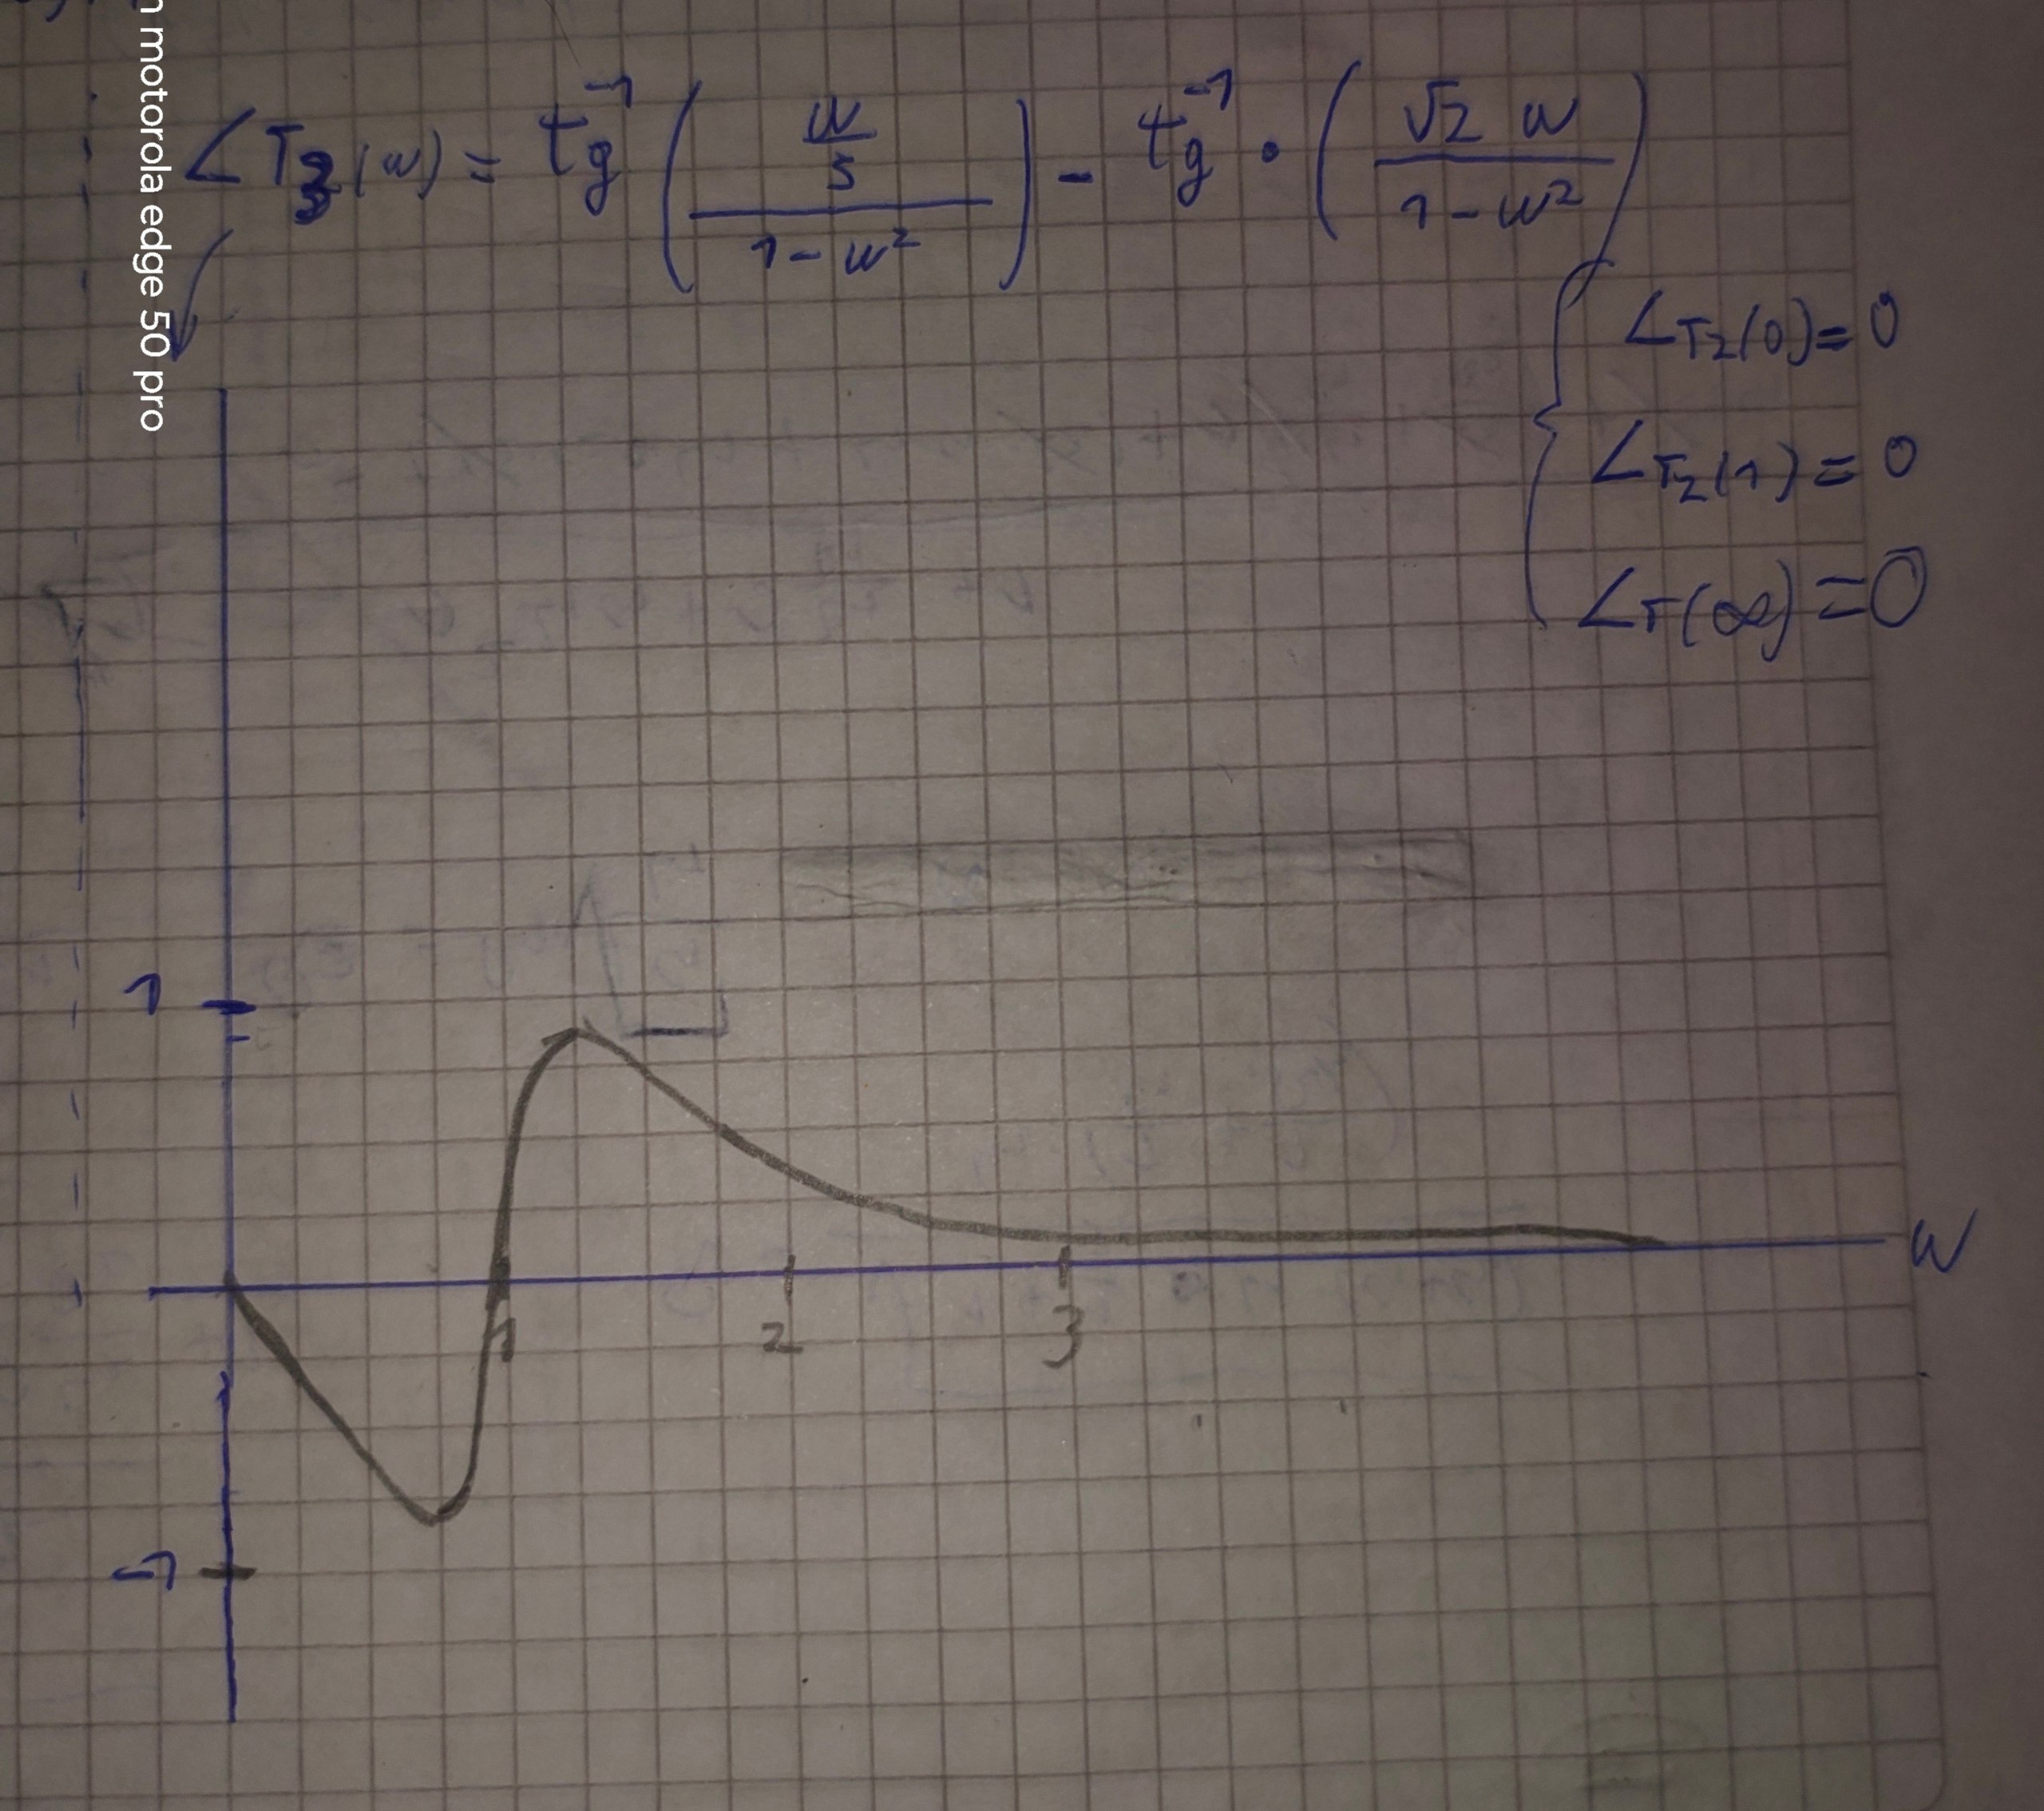 n motorola edge 50 pro
∠T3(w) = tg⁻¹ ( (w/5) / (1-w²) ) - tg⁻¹ · ( √2 w / (1-w²) )
∠T2(0) = 0
∠T2(1) = 0
∠T(∞) = 0
1
w
1 2 3
-1